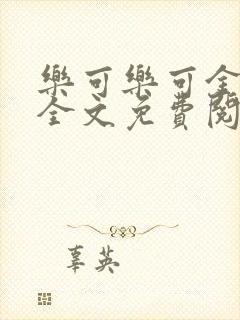 樂可樂可全
全文免費閱
辜英